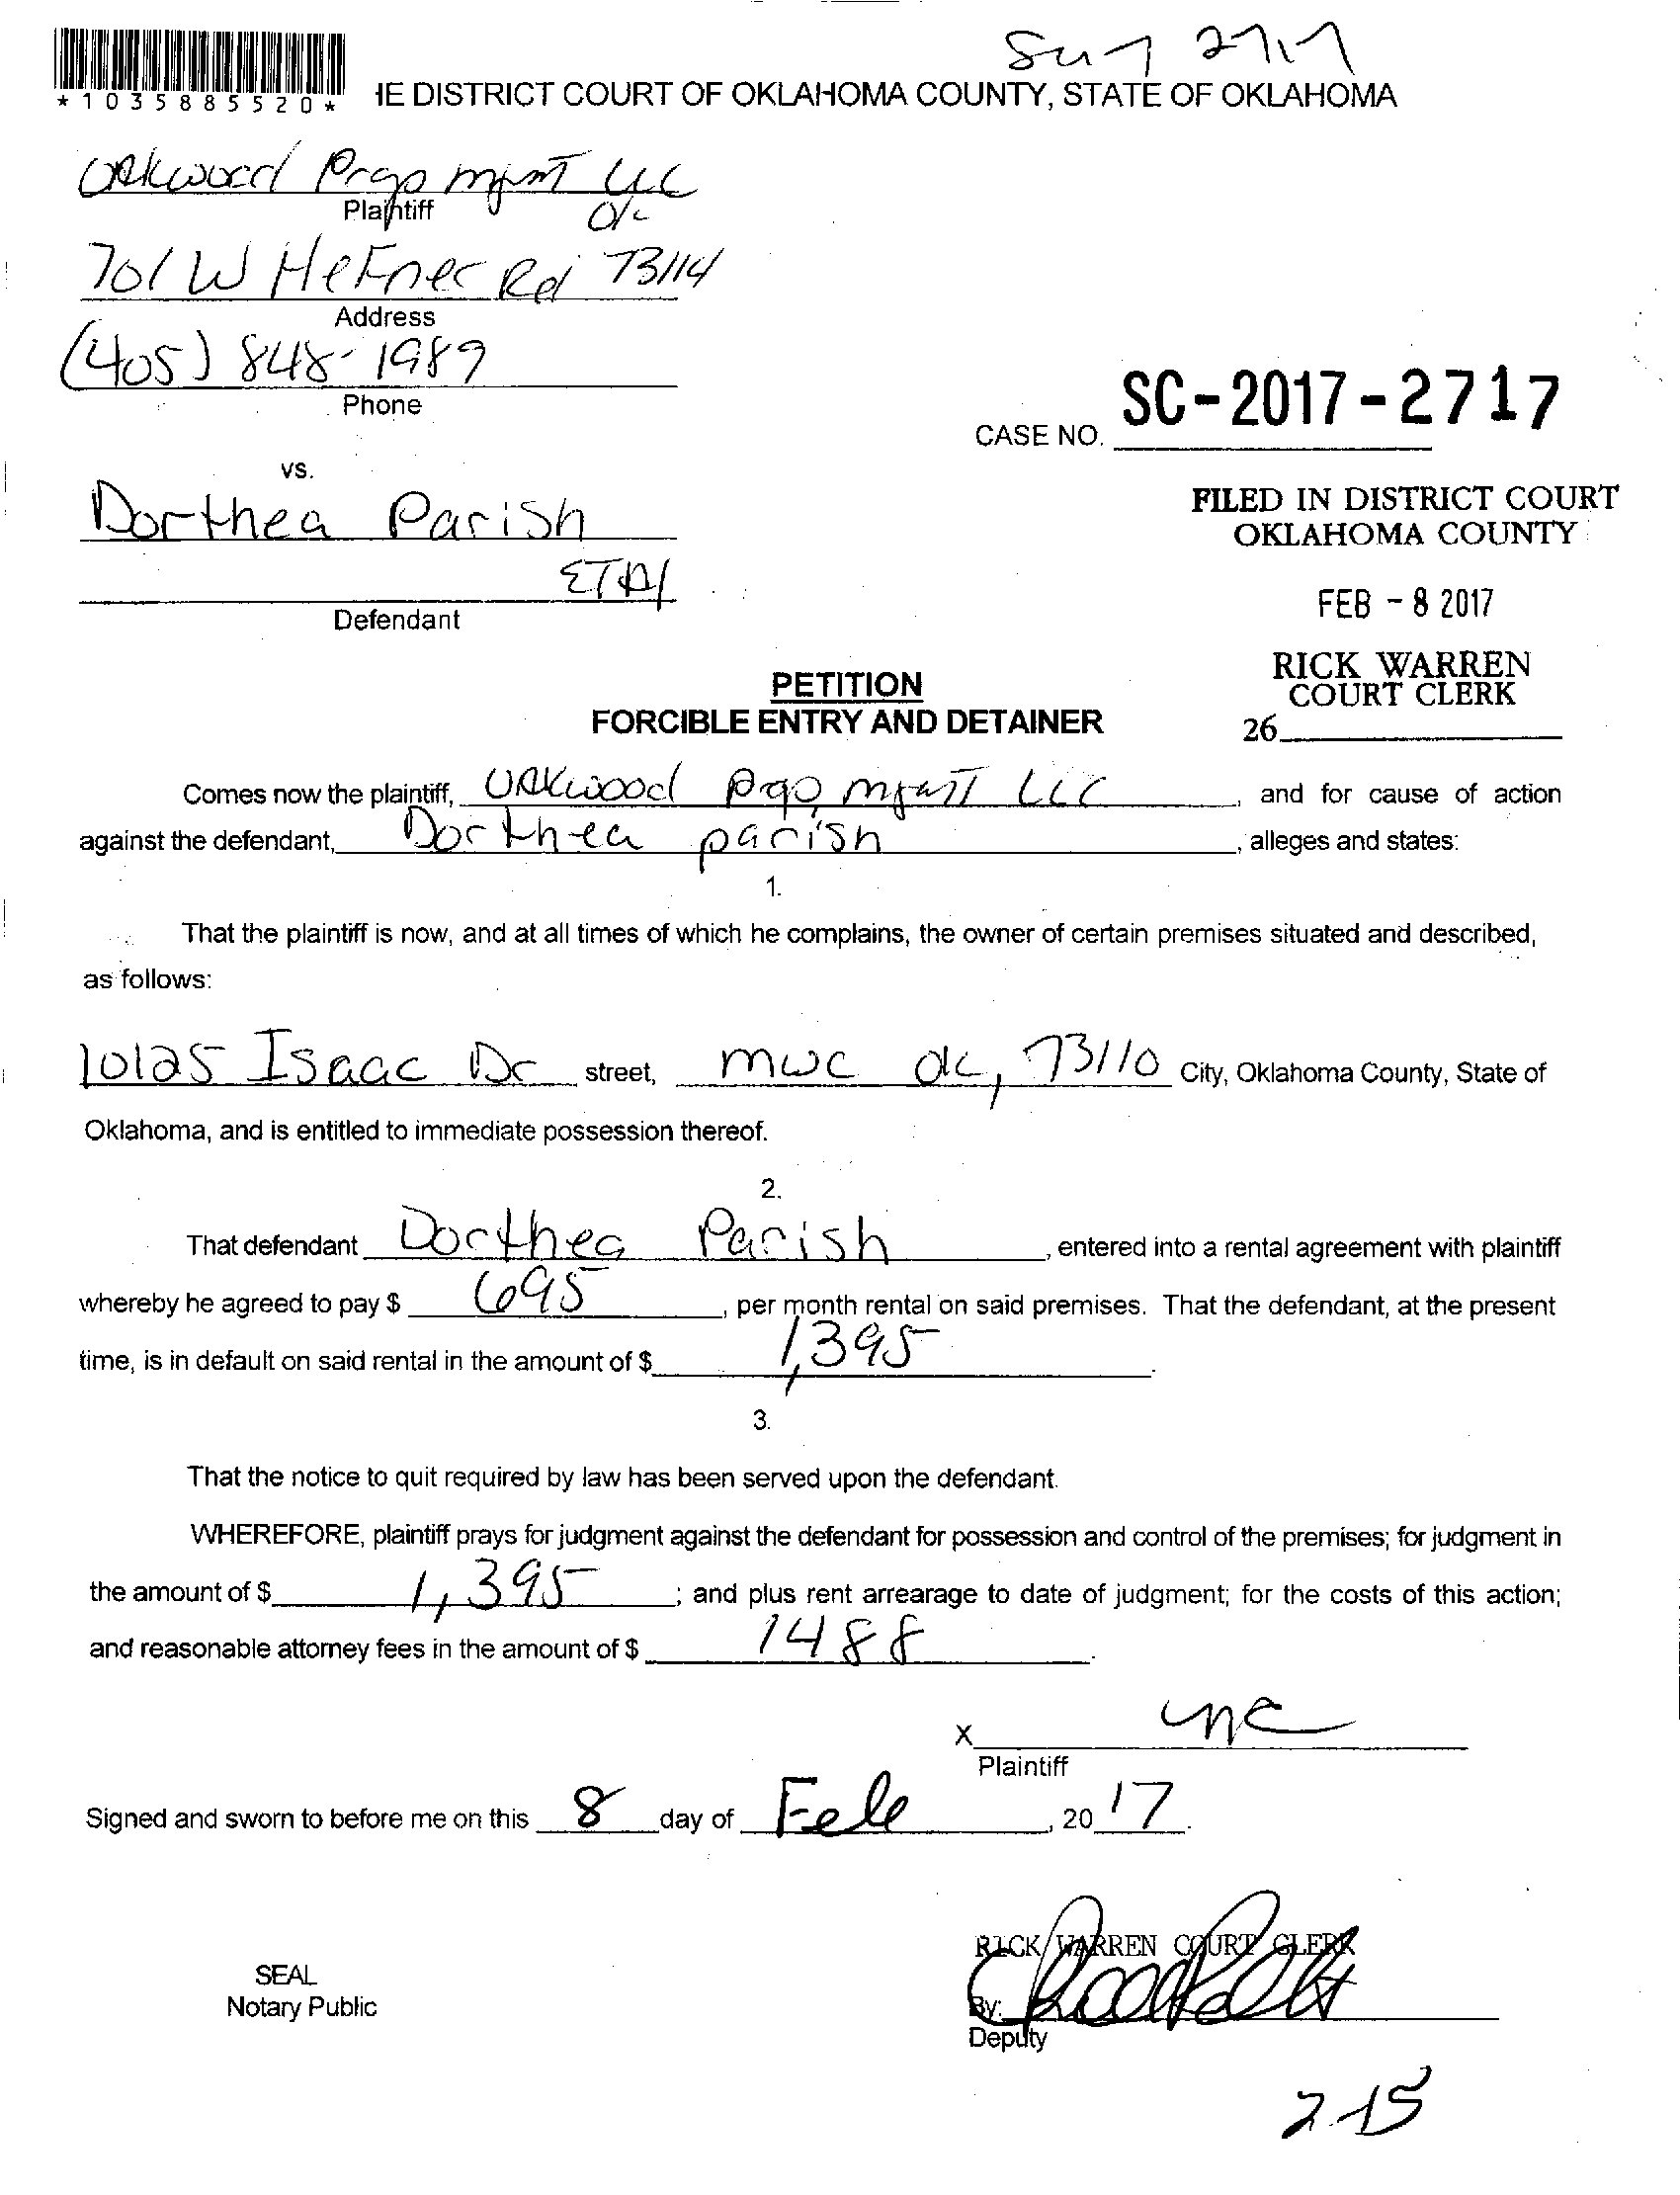 *1035885520*
HE DISTRICT COURT OF OKLAHOMA COUNTY, STATE OF OKLAHOMA
Oakwood Prop mgmt LLC
Plaintiff
701 W Hefner Rd 73114
Address
(405) 848-1989
Phone
CASE NO. SC-2017-2717
vs.
Dorthea Parish
FILED IN DISTRICT COURT
OKLAHOMA COUNTY
ETAl
Defendant
FEB - 8 2017
RICK WARREN
COURT CLERK
26
PETITION
FORCIBLE ENTRY AND DETAINER
Comes now the plaintiff, Oakwood Prop mgmt LLC, and for cause of action
against the defendant, Dorthea parish, alleges and states:
1.
That the plaintiff is now, and at all times of which he complains, the owner of certain premises situated and described,
as follows:
10125 Isaac Dr street, mwc ok, 73110 City, Oklahoma County, State of
Oklahoma, and is entitled to immediate possession thereof.
2.
That defendant Dorthea Parish, entered into a rental agreement with plaintiff
whereby he agreed to pay $ 695, per month rental on said premises. That the defendant, at the present
time, is in default on said rental in the amount of $ 1,395.
3.
That the notice to quit required by law has been served upon the defendant.
WHEREFORE, plaintiff prays for judgment against the defendant for possession and control of the premises; for judgment in
the amount of $ 1,395; and plus rent arrearage to date of judgment; for the costs of this action;
and reasonable attorney fees in the amount of $ 1488.
X
Plaintiff
Signed and sworn to before me on this 8 day of Feb, 2017.
RICK WARREN COURT CLERK
SEAL
Notary Public
By:
Deputy
2-15